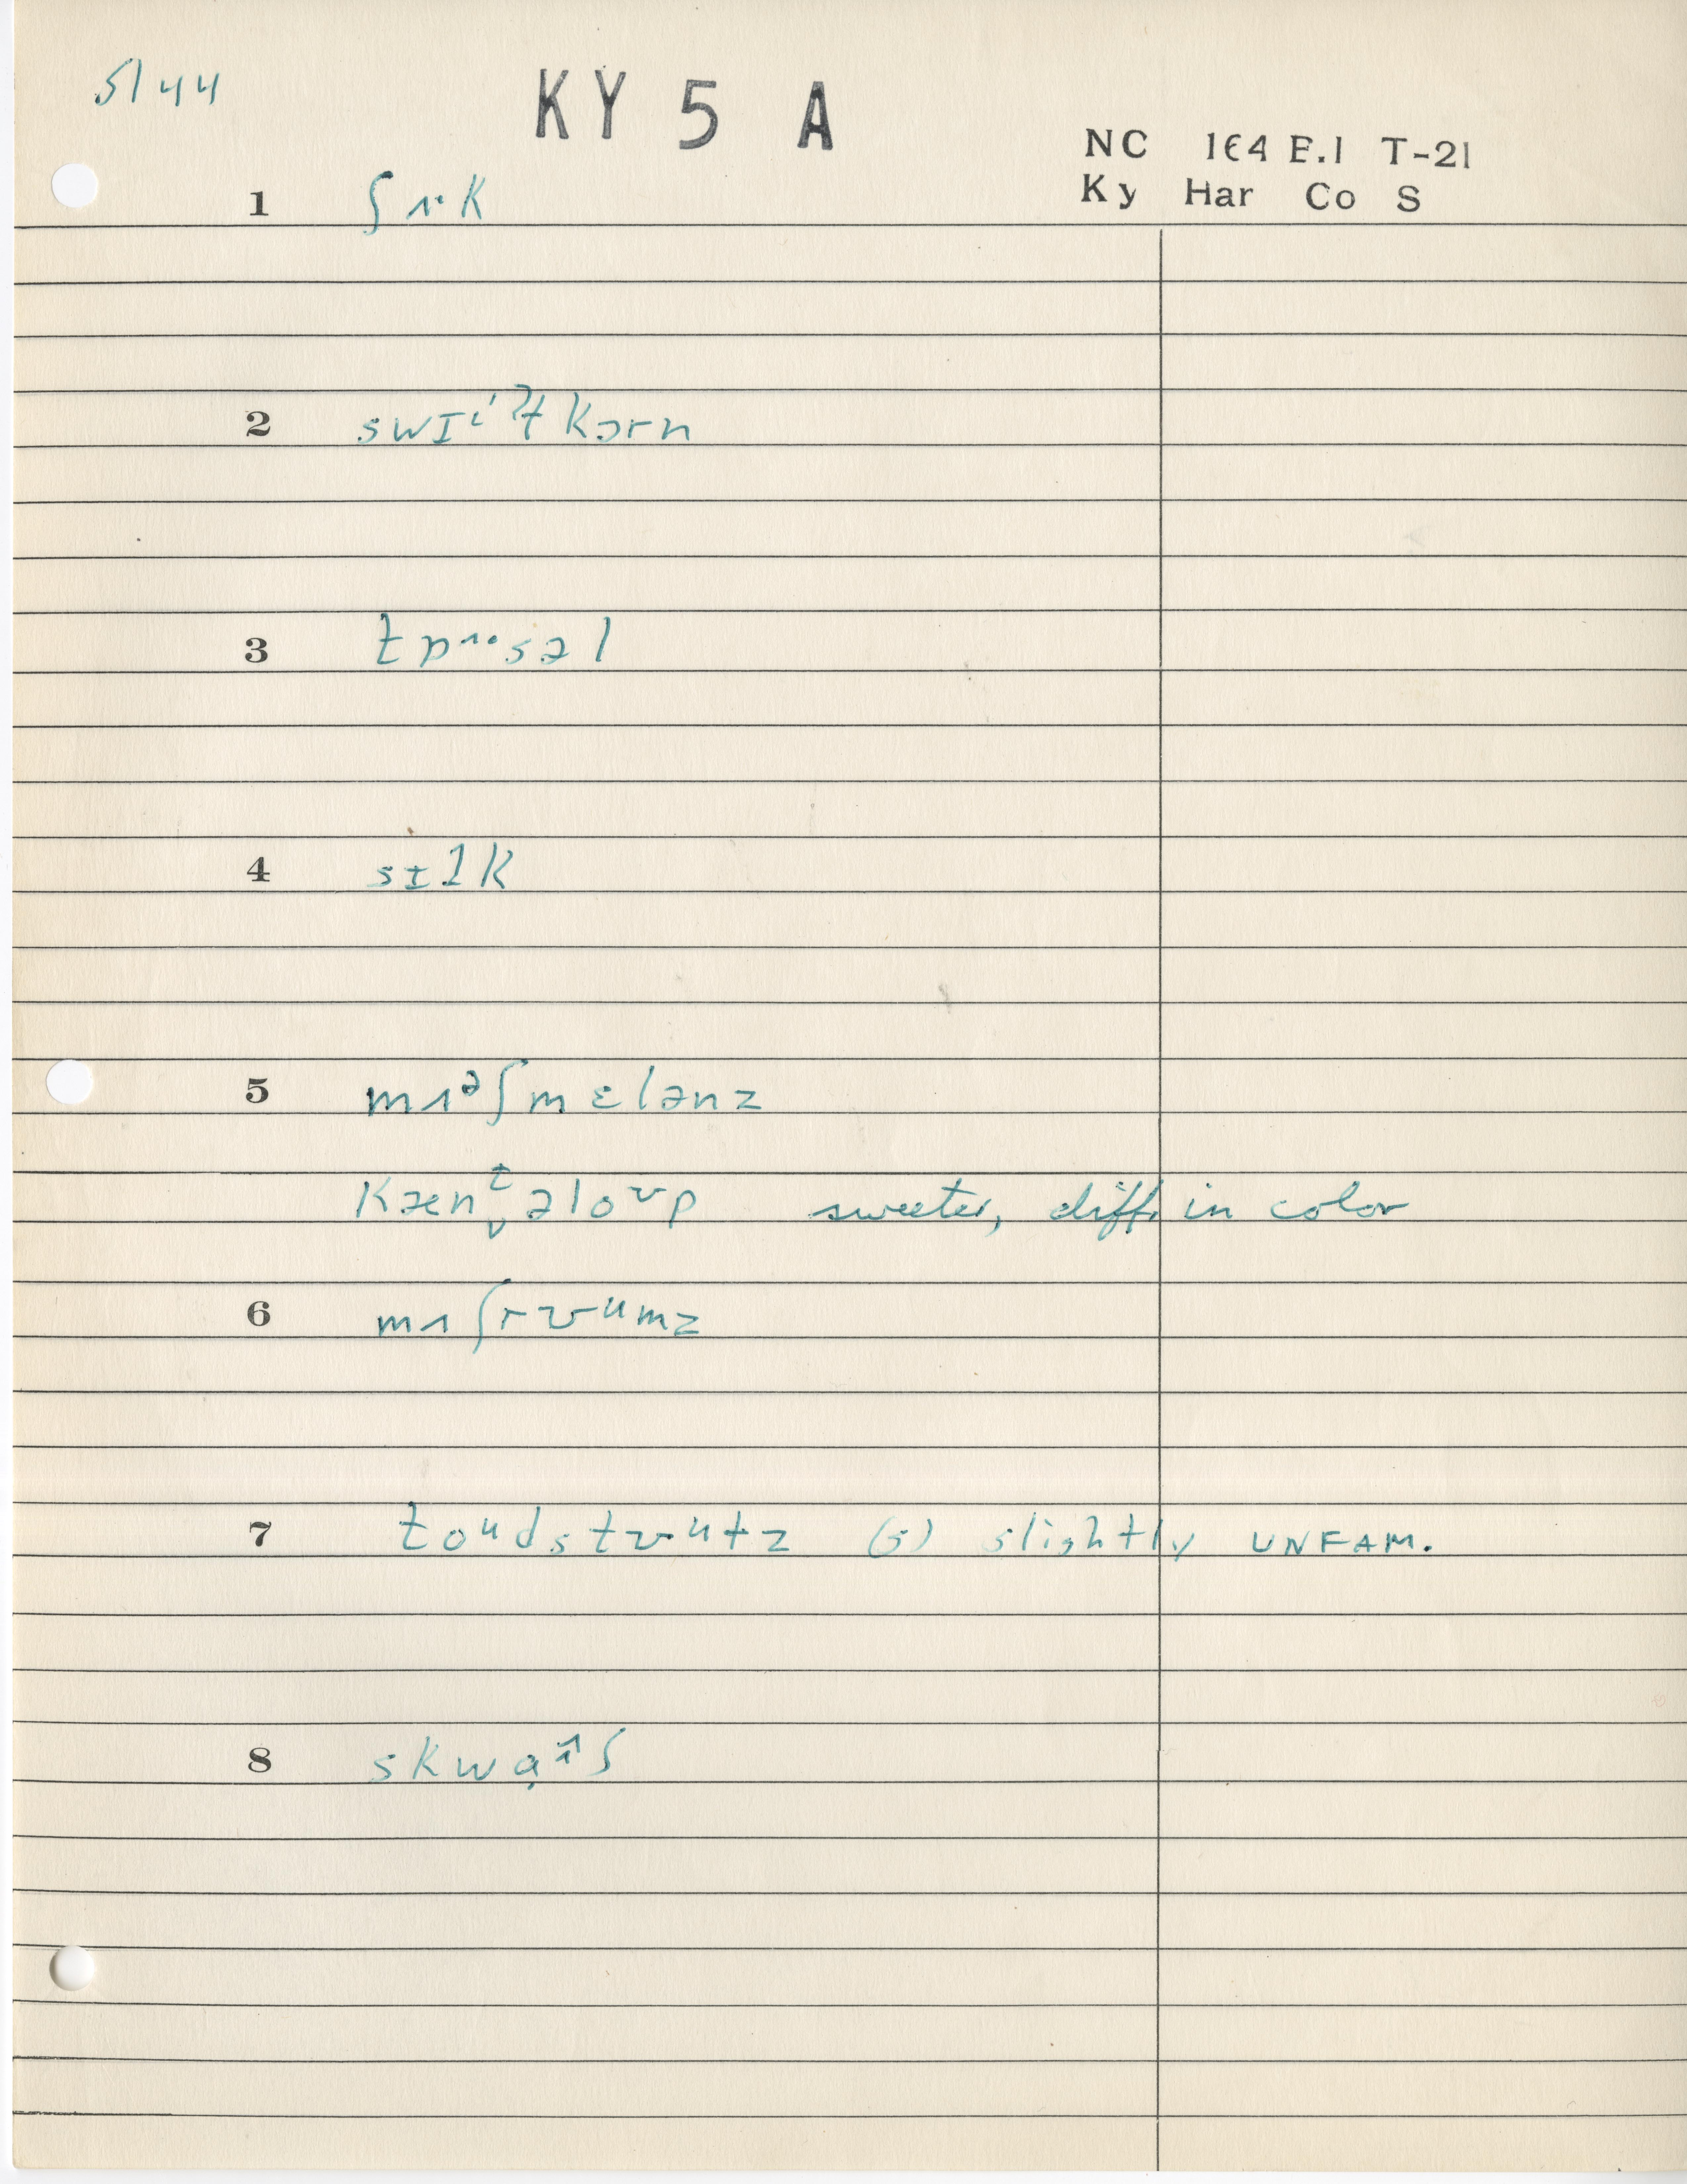 5144
KY 5 A
NC 164 E.1 T-21
Ky Har Co S
1 ʃʌ·k
2 swɪiʼt̬kɔrn
3 tɒʌ·səl
4 sɪlk
5 mʌᵊʃmɛlənz
kænt̬əloᶷp sweeter, diff. in color
6 mʌʃrᶷumz
7 toudstʊutz (s) slightly UNFAM.
8 skwɑ̣ʌʃ